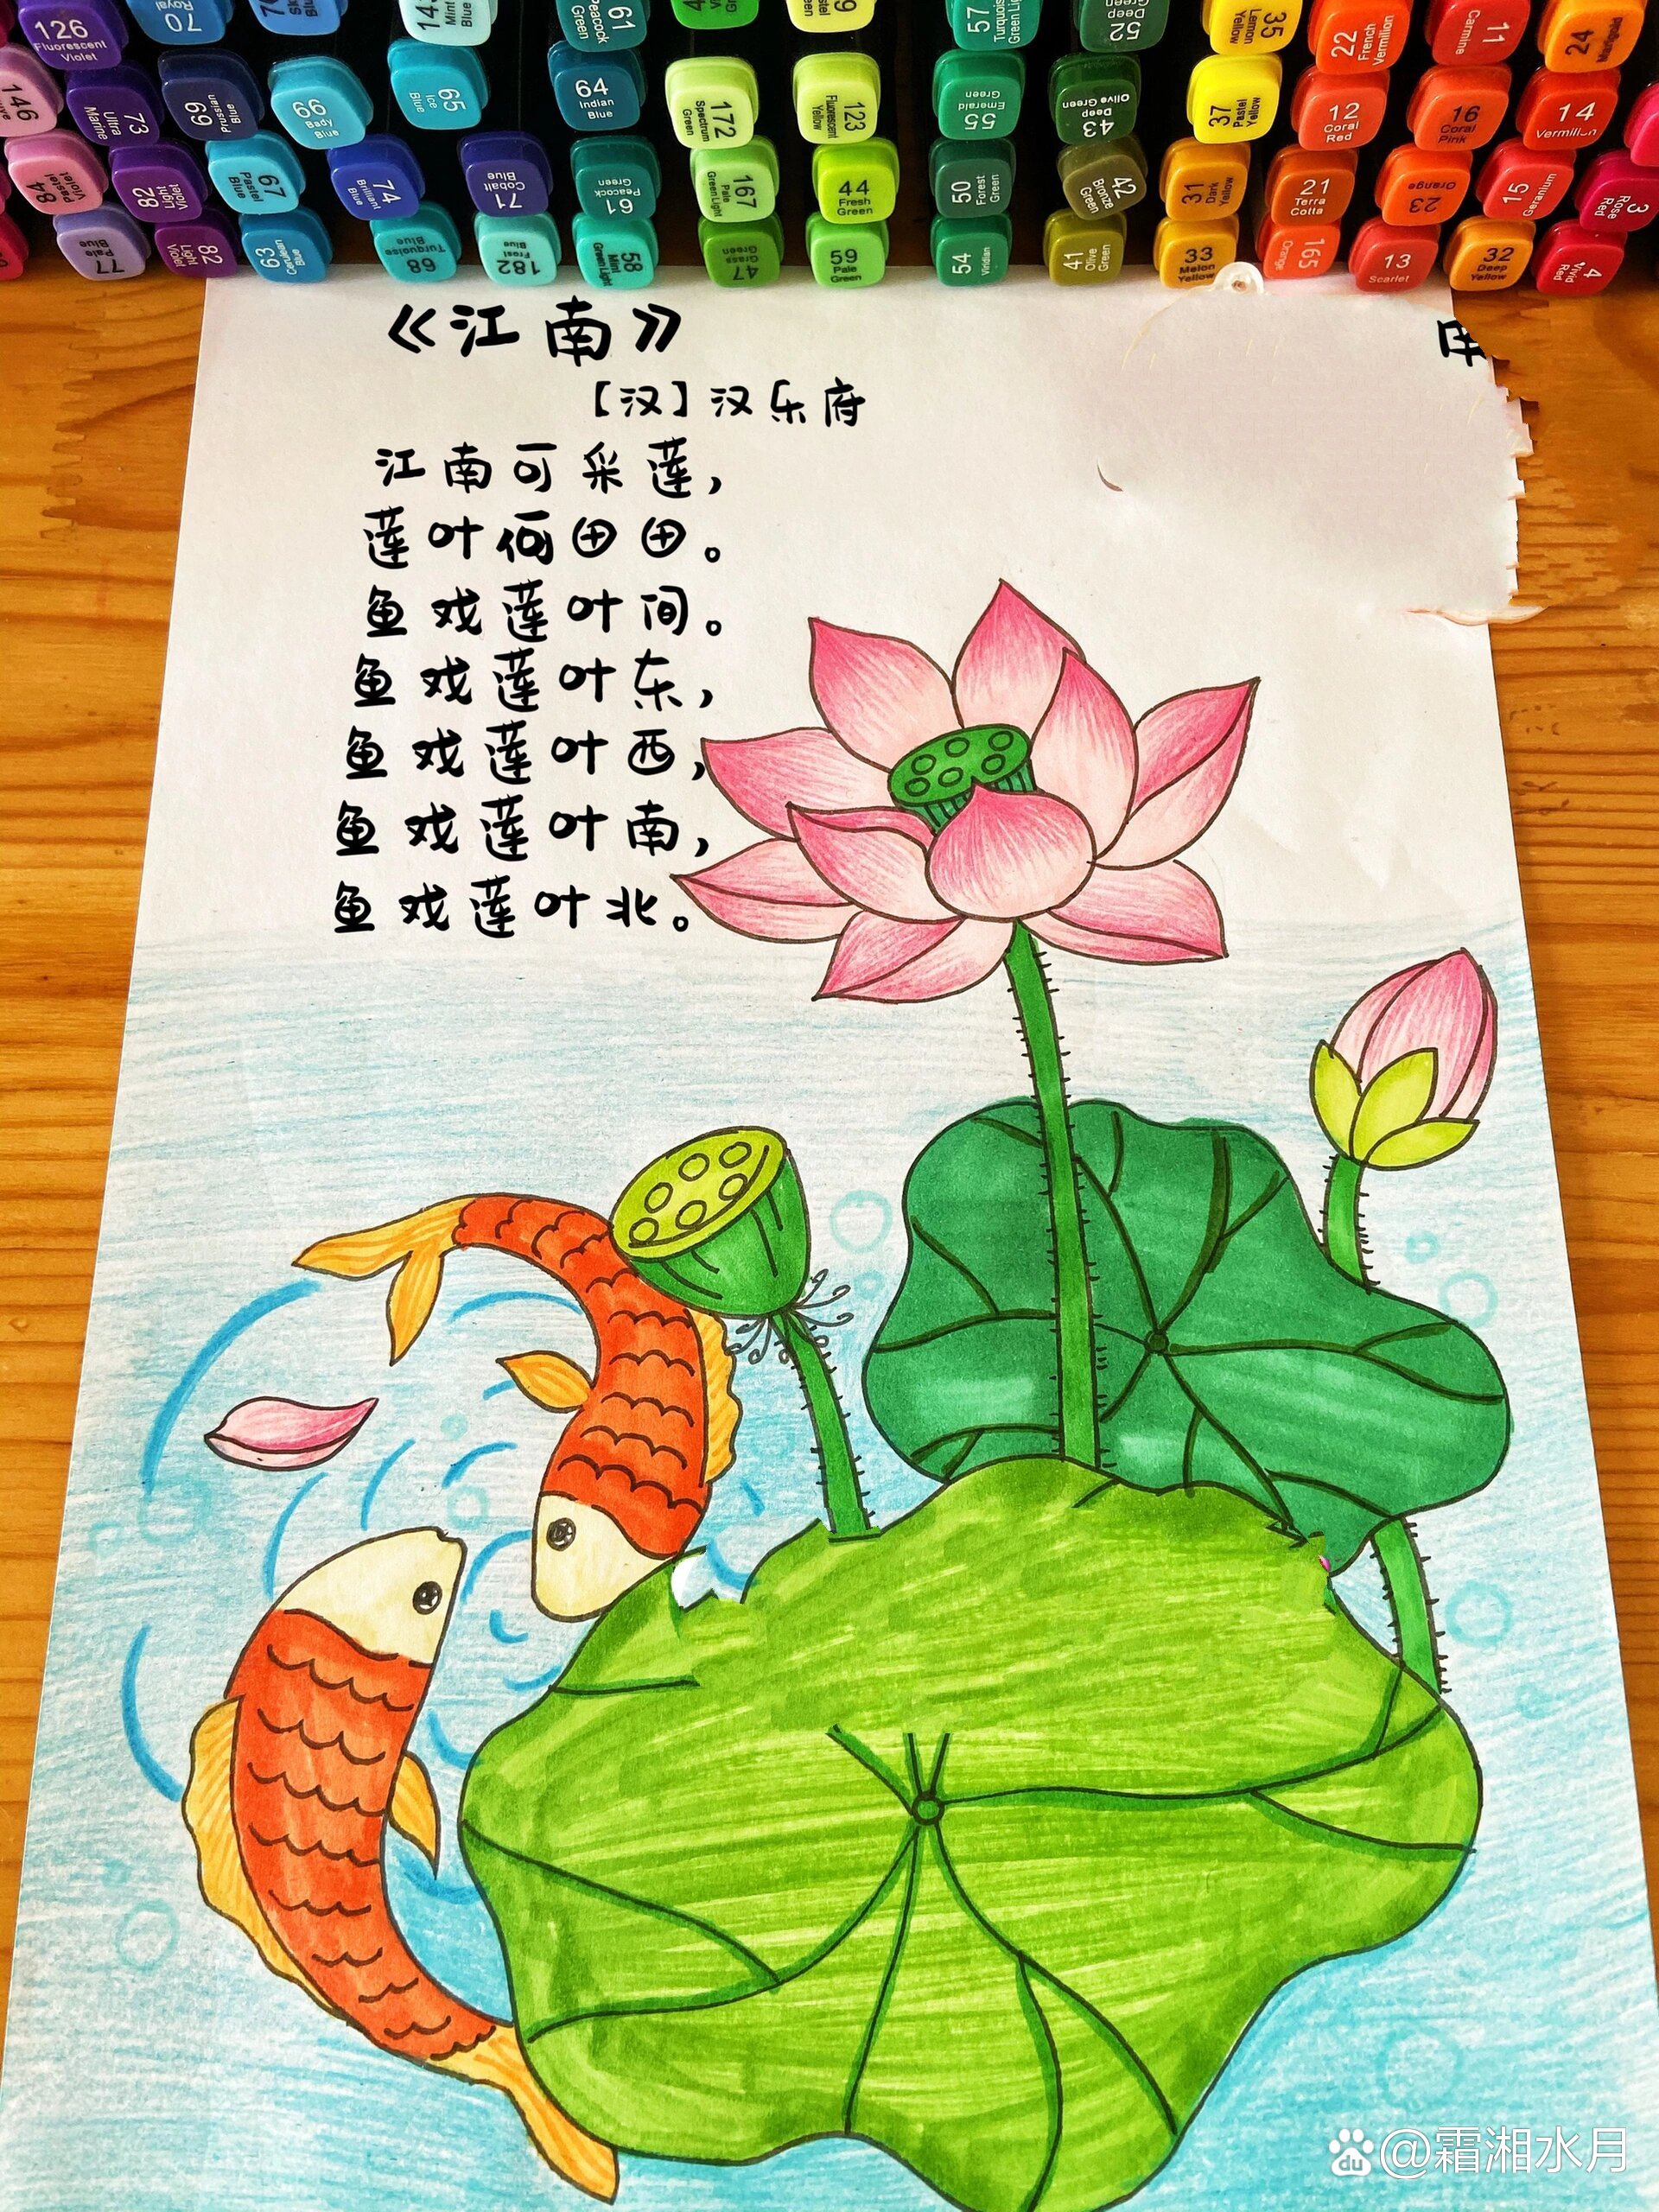 126 Fluorescent Violet
70 Royal
61 Peacock Green
57 Turquoise Green Light
52 Deep Green
35 Lemon Yellow
22 French Vermilion
11 Carmine
24 Marigold
146
73 Ultra Marine
69 Prussian Blue
66 Baby Blue
65 Ice Blue
64 Indian Blue
172 Spectrum Green
123 Fluorescent Yellow
55 Emerald Green
43 Deep Olive Green
37 Pastel Yellow
12 Coral Red
16 Coral Pink
14 Vermilion
84 Pastel Violet
82 Light Violet
67 Pastel Blue
74 Brilliant Blue
71 Cobalt Blue
61 Peacock Green
167 Pale Green Light
44 Fresh Green
50 Forest Green
42 Bronze Green
31 Dark Yellow
21 Terra Cotta
23 Orange
15 Geranium
3 Rose Red
77 Pale Blue
82 Light Violet
63 Cerulean Blue
68 Turquoise Blue
182 Frost Blue
58 Mint Green Light
47 Grass Green
59 Pale Green
54 Viridian
41 Olive Green
33 Melon Yellow
165 Orange
13 Scarlet
32 Deep Yellow
4 Vivid Red
《江南》
【汉】汉乐府
江南可采莲，
莲叶何田田。
鱼戏莲叶间。
鱼戏莲叶东，
鱼戏莲叶西，
鱼戏莲叶南，
鱼戏莲叶北。
du @霜湘水月